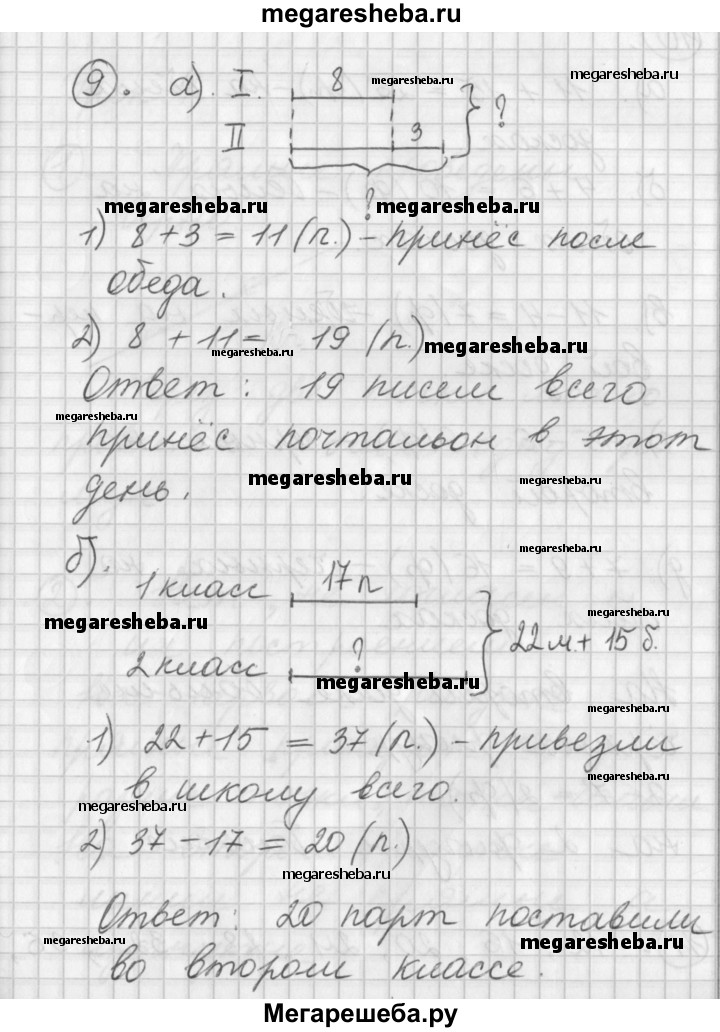 megaresheba.ru
9. а). I. 8 megaresheba.ru megaresheba.ru
II 3 ?
?
megaresheba.ru megaresheba.ru
1) 8 + 3 = 11 (п.) – принёс после
обеда.
2) 8 + 11 = 19 (п.) megaresheba.ru
megaresheba.ru
Ответ: 19 писем всего
megaresheba.ru
принёс почтальон в этот
megaresheba.ru
день.
б). megaresheba.ru
1 класс 17 п
megaresheba.ru
megaresheba.ru
22 м. + 15 б.
2 класс ?
megaresheba.ru
megaresheba.ru
1) 22 + 15 = 37 (п.) – привезли
megaresheba.ru
в школу всего.
megaresheba.ru
2) 37 – 17 = 20 (п.)
megaresheba.ru
Ответ: 20 парт поставили
megaresheba.ru megaresheba.ru
во втором классе.
Мегарешеба.ру